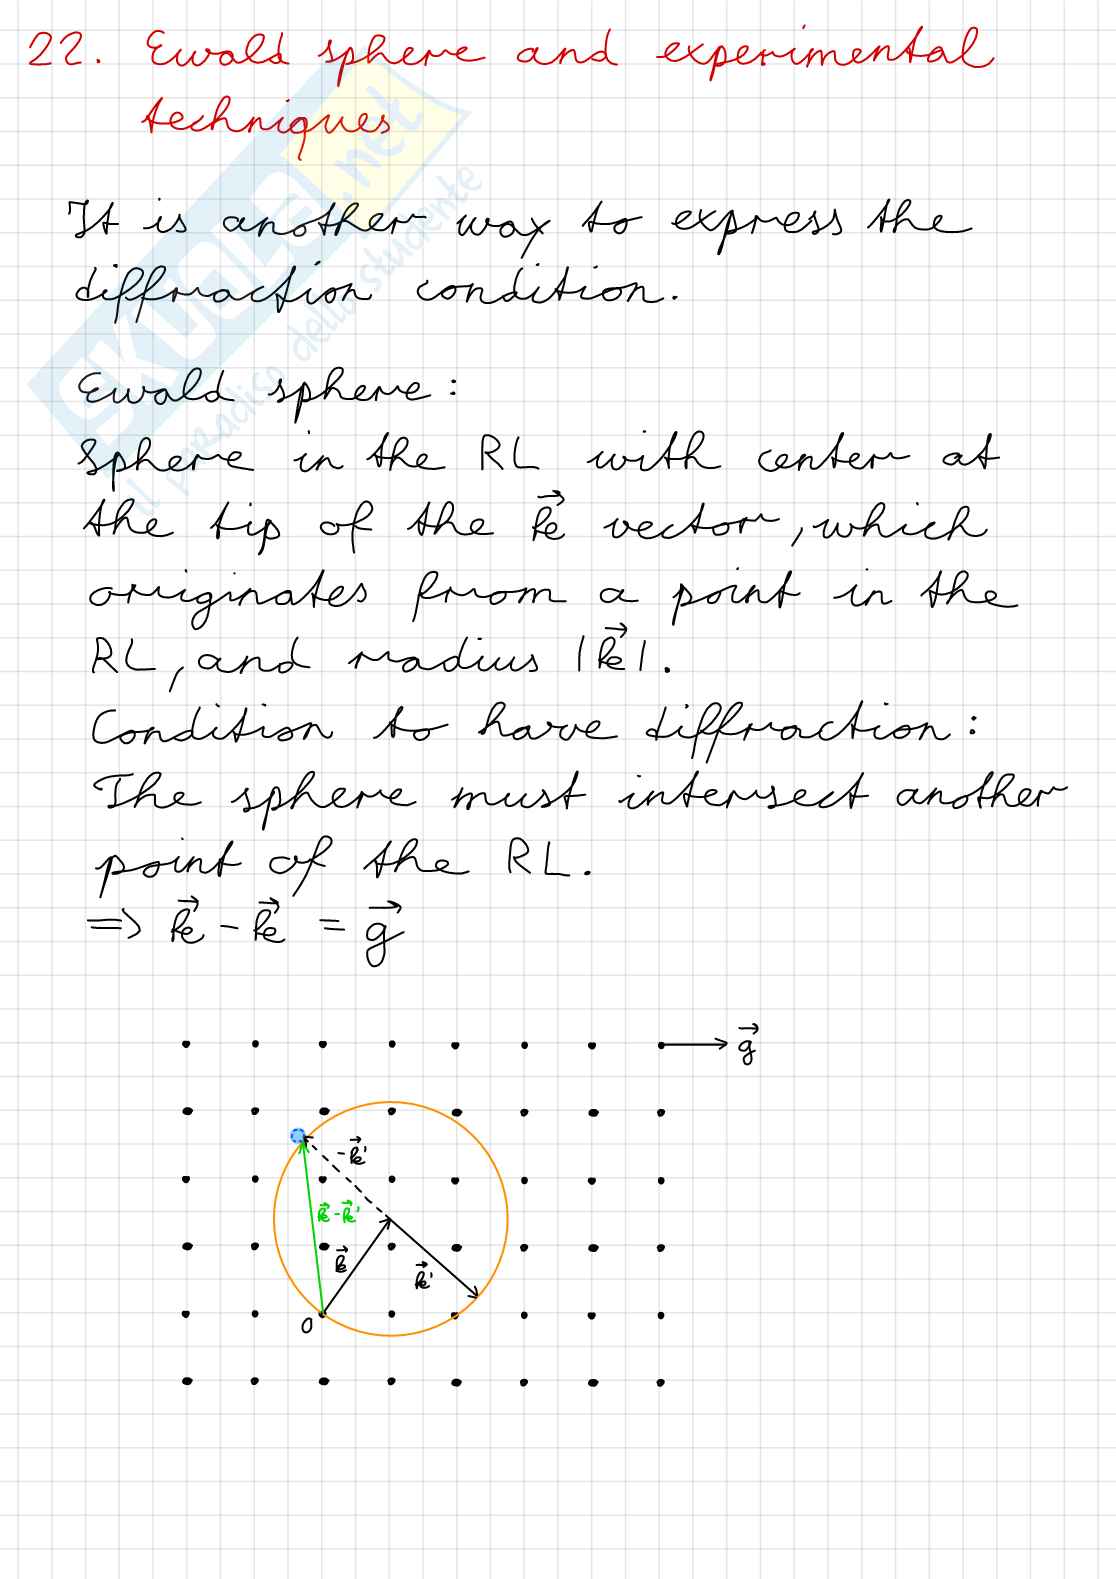 22. Ewald sphere and experimental
techniques
It is another way to express the
diffraction condition.
Ewald sphere:
Sphere in the RL with center at
the tip of the k⃗ vector, which
originates from a point in the
RL, and radius |k⃗|.
Condition to have diffraction:
The sphere must intersect another
point of the RL.
=> k⃗ - k⃗ = g⃗
g⃗
-k⃗'
k⃗-k⃗'
k⃗
k⃗'
O
SKUOLA.net
il paradiso dello studente